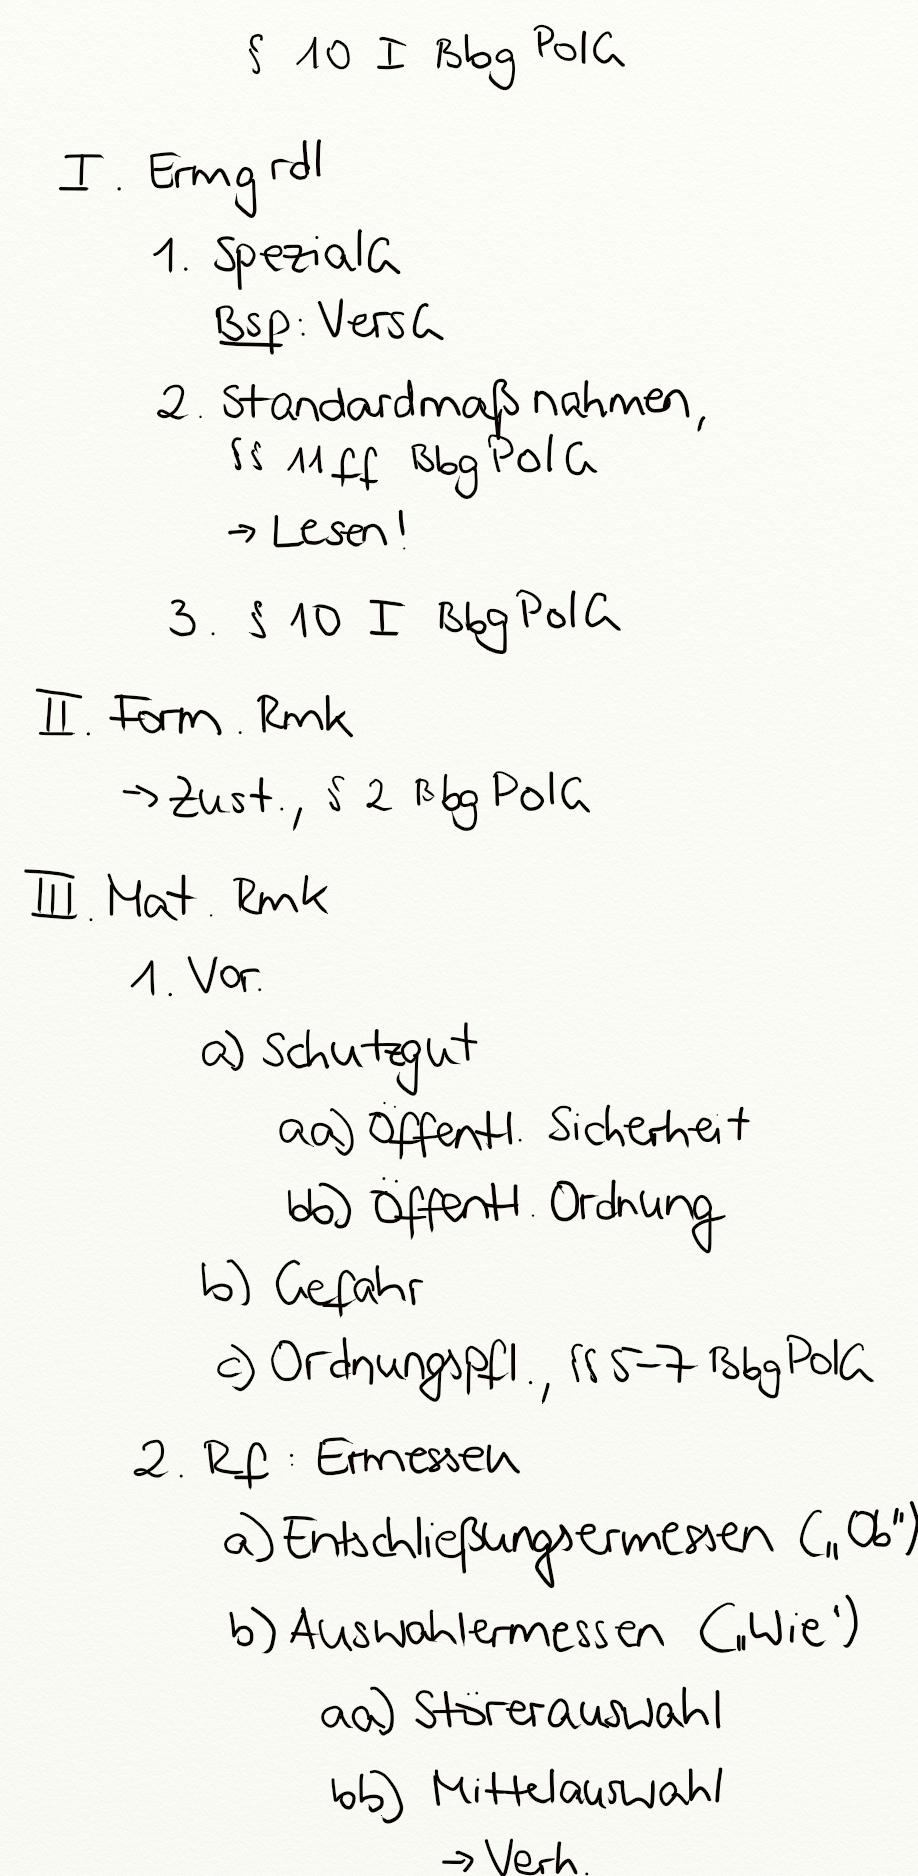 § 10 I BbgPolG
I. Ermgrdl
1. SpezialG
Bsp: VersG
2. Standardmaßnahmen,
§§ 11ff BbgPolG
→ Lesen!
3. § 10 I BbgPolG
II. Form. Rmk
→ Zust., § 2 BbgPolG
III. Mat. Rmk
1. Vor.
a) Schutzgut
aa) Öffentl. Sicherheit
bb) Öffentl. Ordnung
b) Gefahr
c) Ordnungspfl., §§ 5-7 BbgPolG
2. Rf: Ermessen
a) Entschließungsermessen („Ob")
b) Auswahlermessen („Wie')
aa) Störerauswahl
bb) Mittelauswahl
→ Verh.